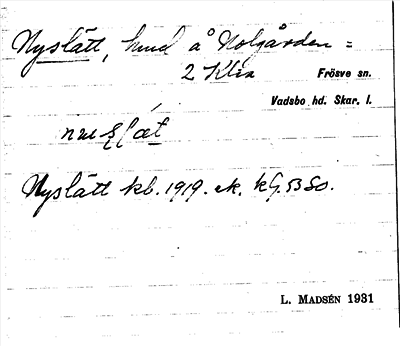 Nyslätt, hmd å Nolgården =
2 Klx Frösve sn.
Vadsbo hd. Skar. l.
Nyslätt kb. 1919. ek. kG. 53 So.
L. MADSÉN 1931